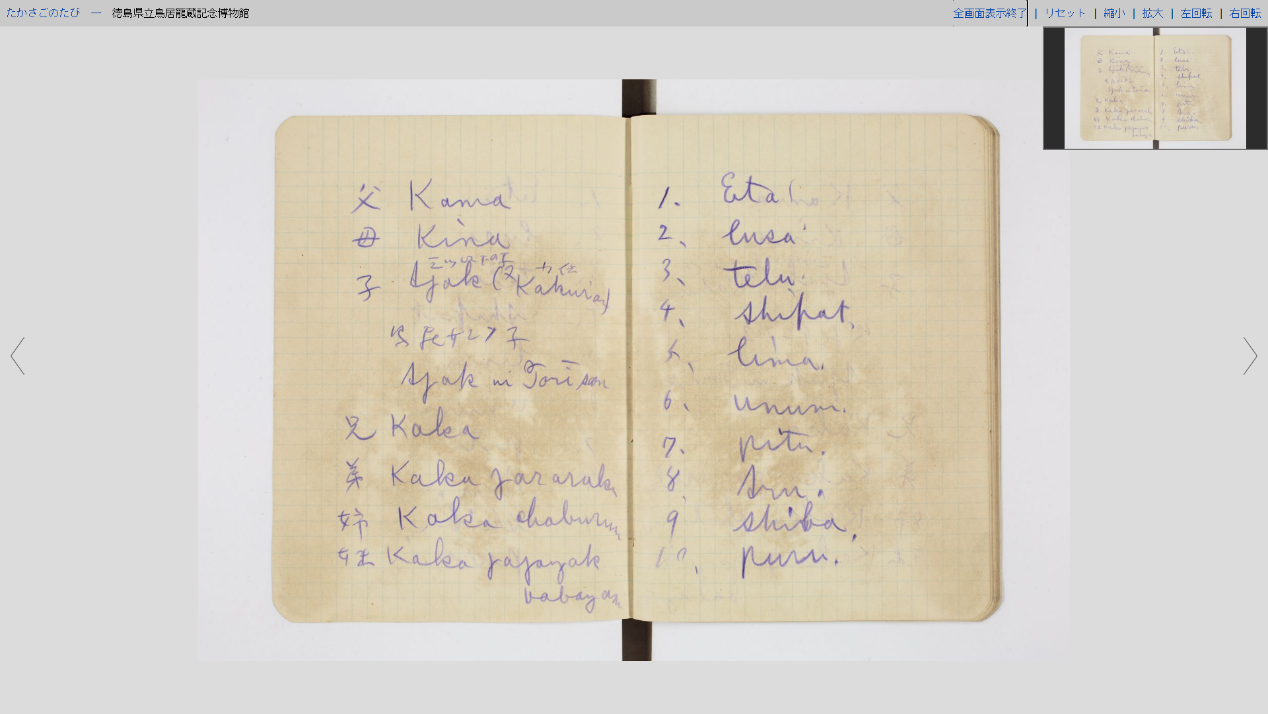 たかさごのたび — 徳島県立鳥居龍蔵記念博物館
全画面表示終了 | リセット | 縮小 | 拡大 | 左回転 | 右回転
父 Kama
母 Kina
子 Ajak (又 Kakurian)
鳥居サンノ子
Ajak ni Tori san
兄 Kaka
弟 Kaka jararak
姉 Kaka
Kaka
1. Eta
2、 lusa
3、 telu.
4、 shipat.
5、 lima.
6、 unum.
7. pitu.
8. Aru.
9 shiba
10、 puru.